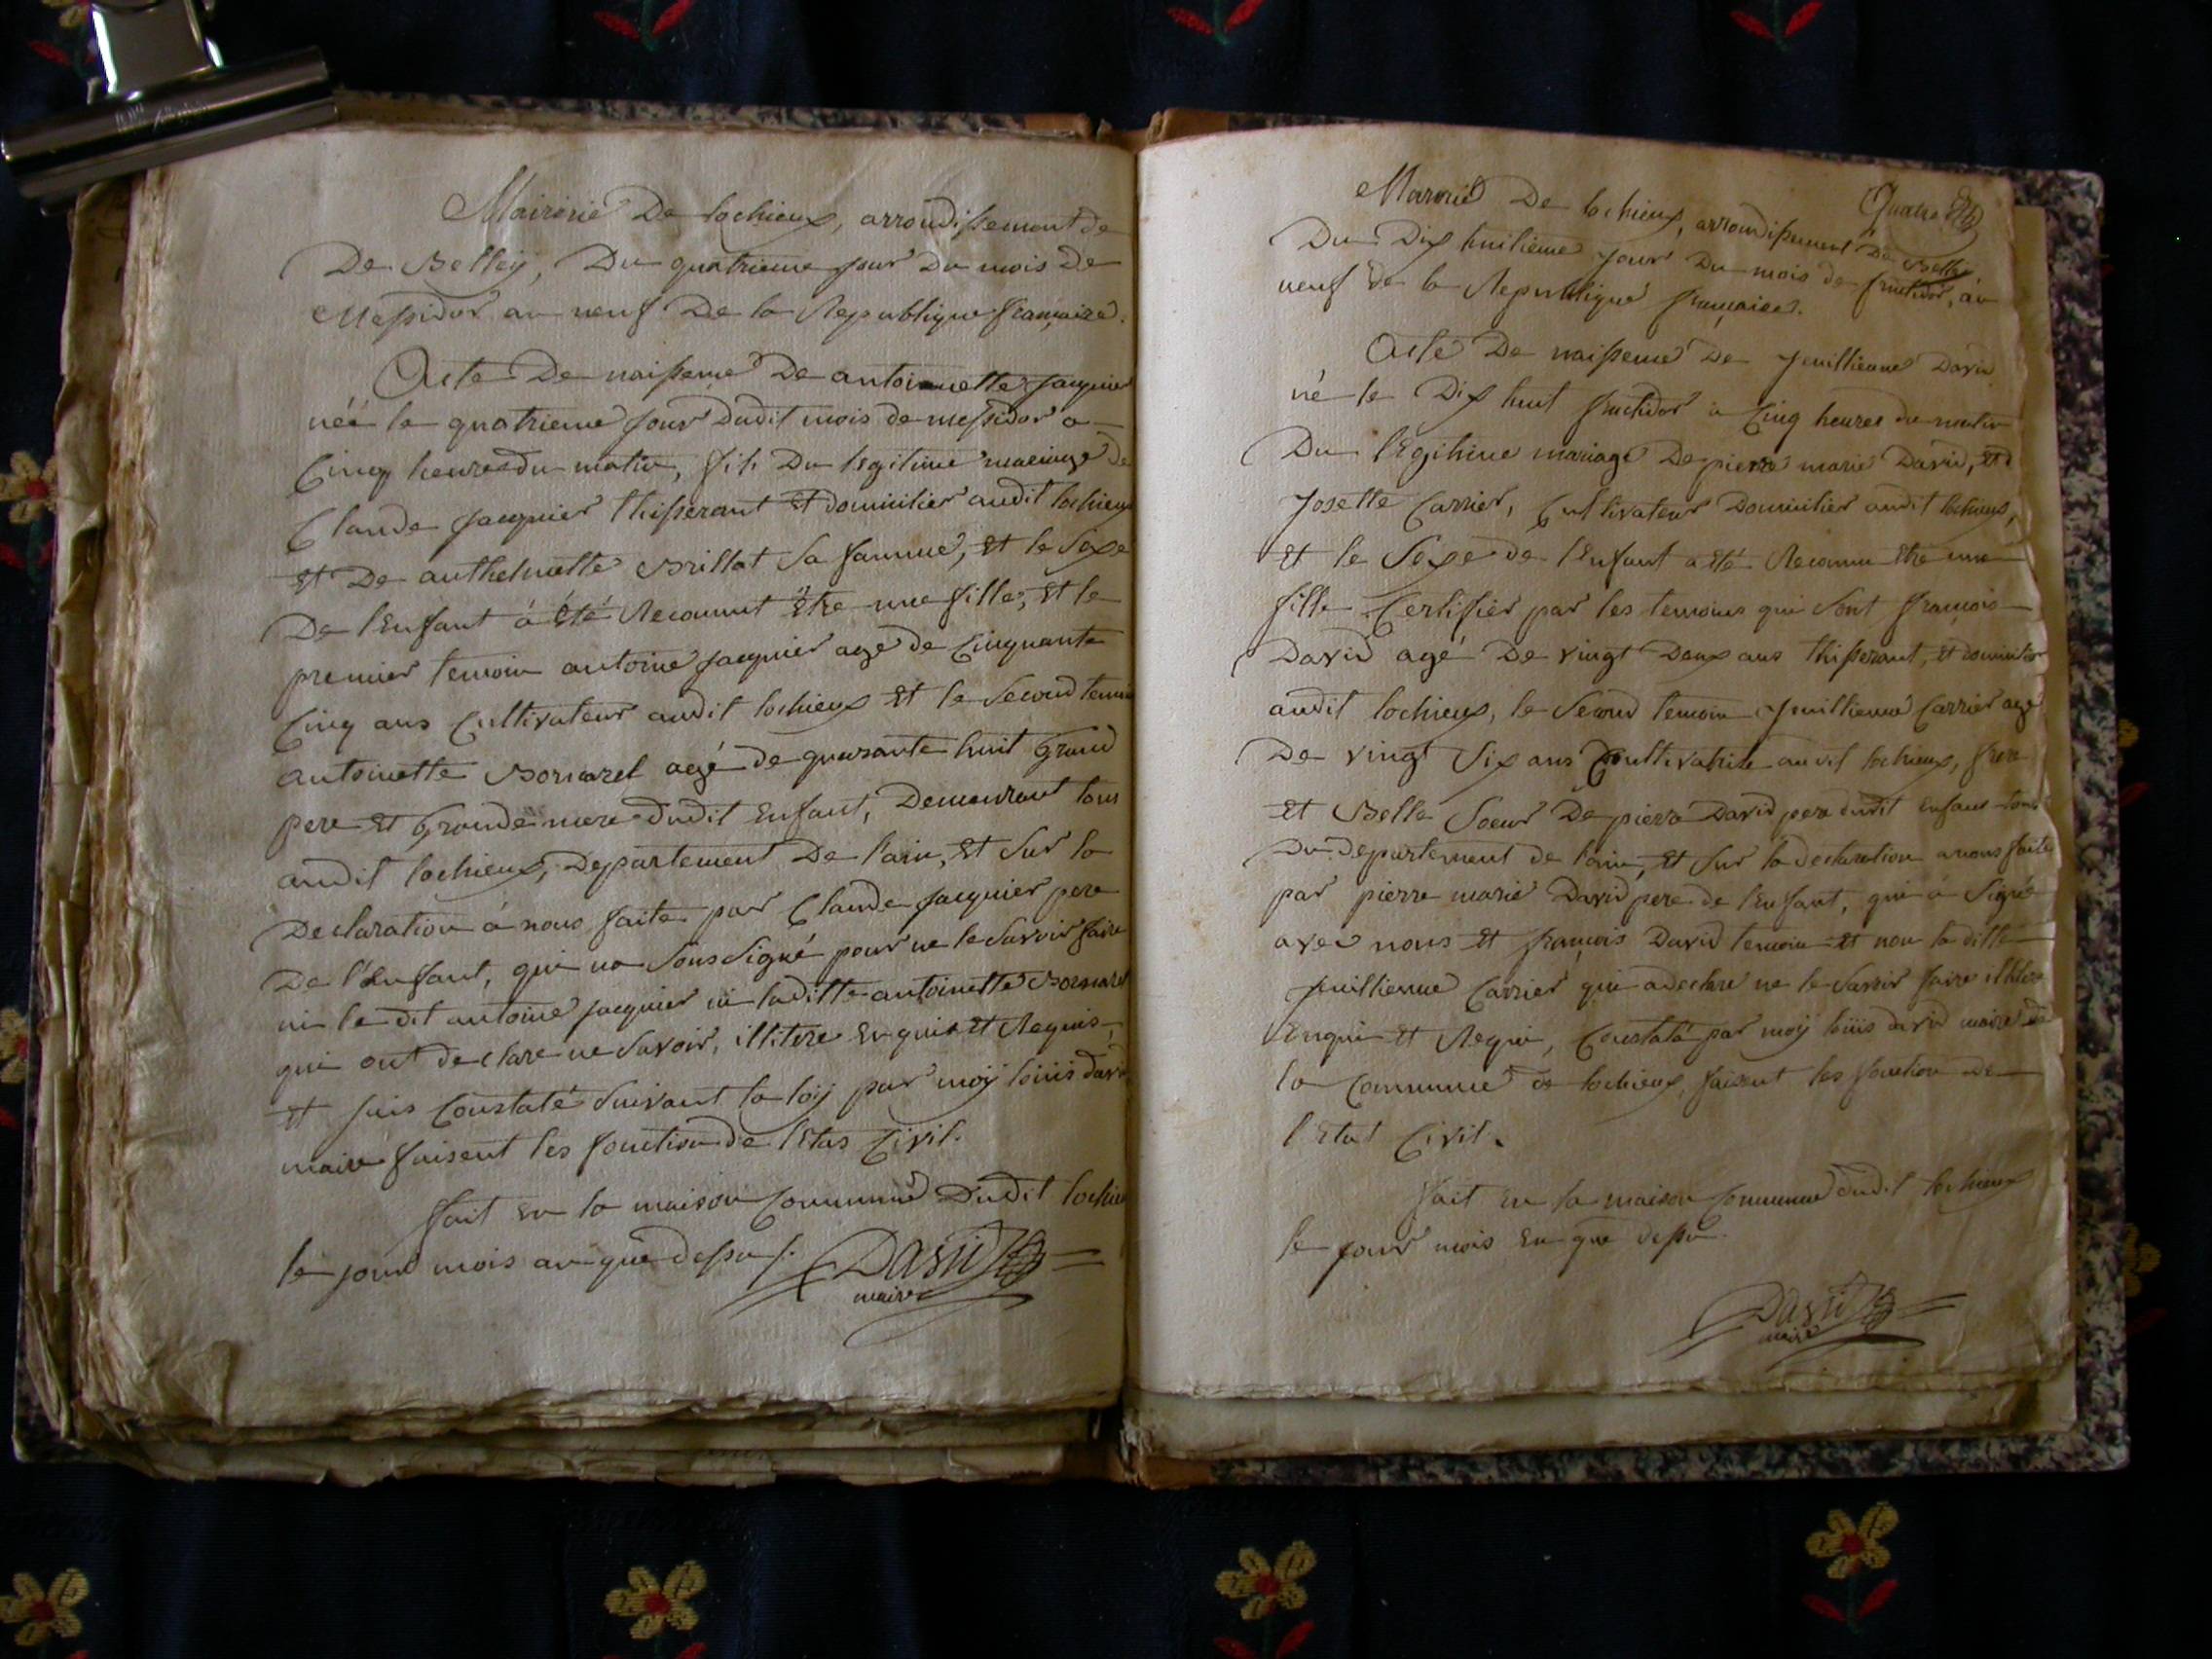 Mairerie De lochieux, arrondissement de
De Belley, Du quatrieme jour Du mois De
Messidor an neuf De la Republique francaize.
Acte De naissence De antoinette jacquier
néé le quatrieme jour Dudit mois de messidor a
Cinq heures du matin, fils Du legitime mariage de
Claude jacquier thisserant Et domicilier audit lochieux
Et De anthelmette Brillat Sa famme, Et le Sexe
De l'Enfant á été Reconnut être une fille, Et le
premier temoin antoine jacquier age de Cinquante
Cinq ans Cultivateur audit lochieux Et le Second temoin
antoinette Bornarel agé de quarante huit Grand
pere Et Grande mere dudit Enfant, Demeurant tous
audit lochieux, Departement De l'ain, Et Sur la
Declaration á nous faite par Claude jacquier pere
De l'Enfant, qui na Sous Signé pour ne le Savoir faire
ni le dit antoine jacquier ni laditte antoinette Bornarel
qui ont declare ne Savoir, illitere Enquis et Requis,
Et juis Constaté Suivant la loij par moij loüis david
maire faisent les fonction de l'Etas Civil.
fait En la maison Commune Dudit lochieux
le jour mois an que dessus.
David
maire
Quatre
Mairerie De lochieux, arrondissement De Belley
Du Dix huitieme jour Du mois de fructidor, an
neuf De la Republique francaise.
Acte De naissence De juillienne David
né le Dix huit fructidor a Cinq heures du matin
Du legitime mariage De pierre marie David, Et
Josette Carrier, Cultivateur Domicilier audit lochieux,
Et le Sexe de l'Enfant a été Reconnu Etre une
fille Certifier par les temoins qui Sont francois
David agé De vingt Deux ans thisserant, Et domicilier
audit lochieux, le Second temoin juillienne Carrier age
De vingt Six ans Cultivatrice audit lochieux, frere
Et Belle Soeur De pierre David pere dudit Enfant tous
Du departement de l'ain, Et Sur la declaration a nous faite
par pierre marie David pere de l'Enfant, qui á Signé
avec nous Et francois David temoin Et non la ditte
juillienne Carrier qui a declare ne le Savoir faire illitere
Enqui Et Requi, Constaté par moij loüis david maire de
la Commune de lochieux, faisent les fonction De
l'Etat Civil.
fait En la maison Commune dudit lochieux
le jour mois En que dessu.
David
maire